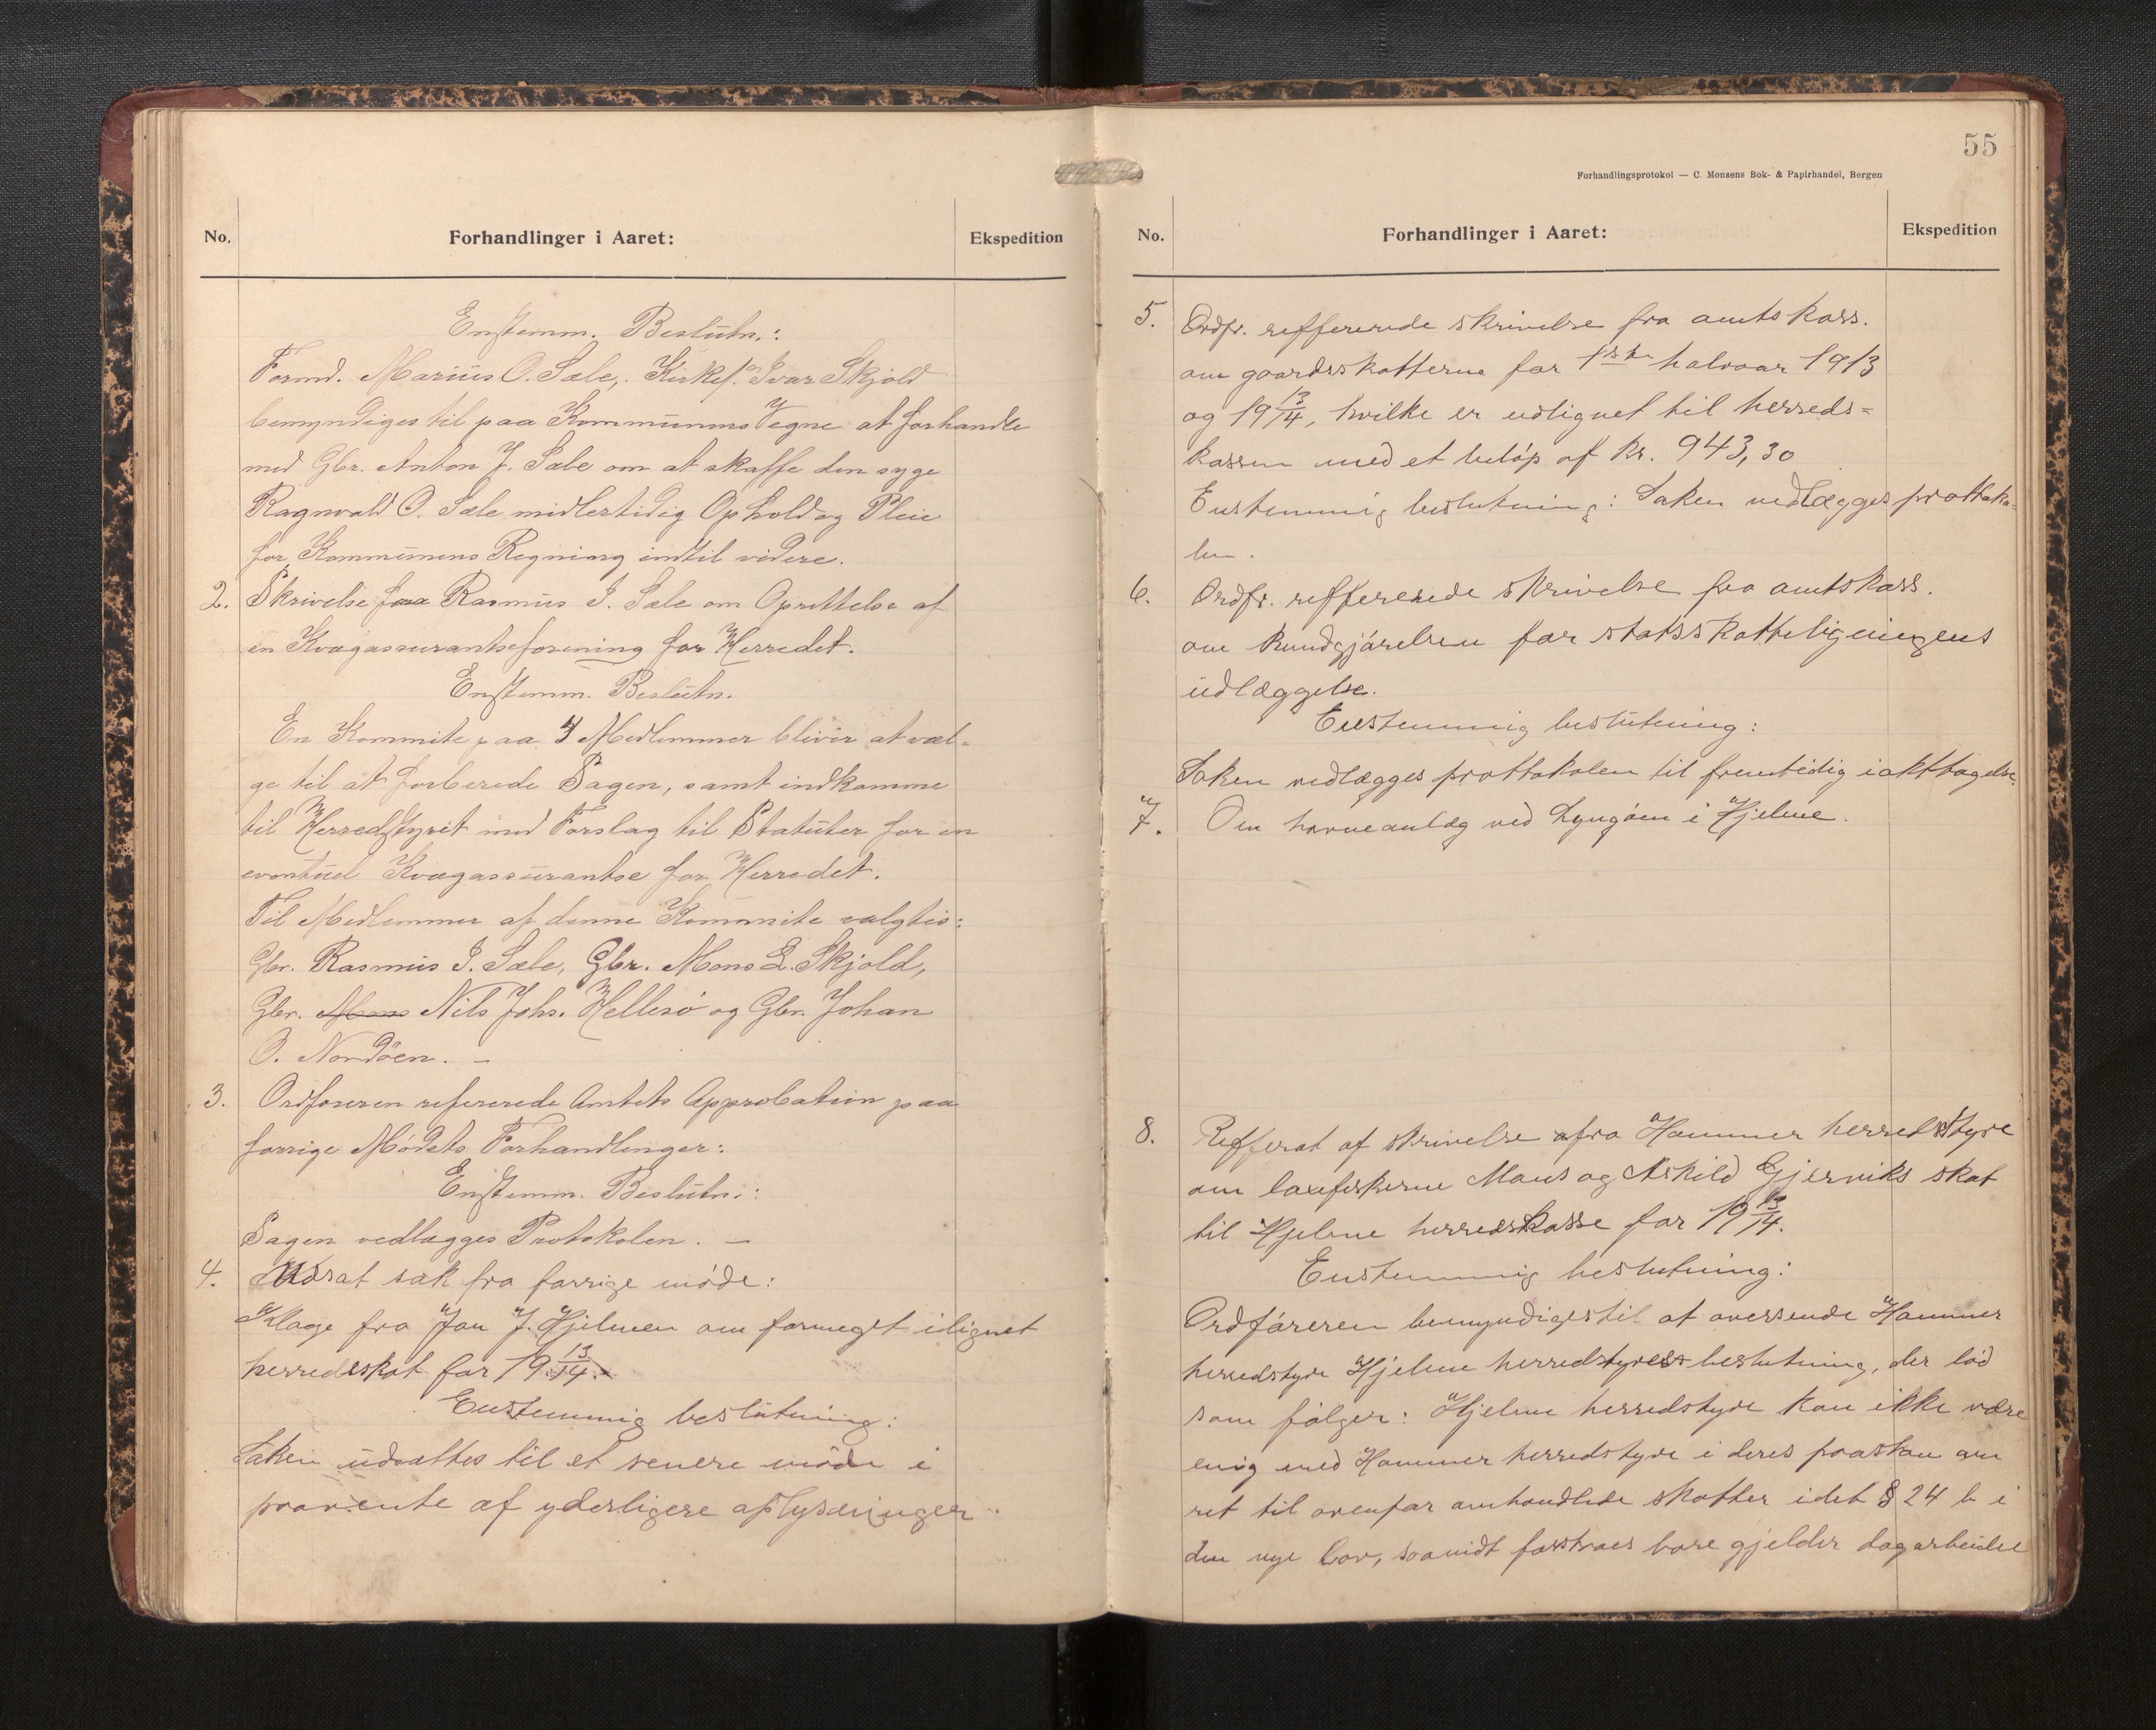 No.
Forhandlinger i Aaret:
Ekspedition
Enstemm. Beslutn.:
Formd. Marius O. Sæle, Kirkes. Ivar Skjold
bemyndiges til paa Kommunens Vegne at forhandle
med Gbr. Anton J. Sæle om at skaffe den syge
Ragnvald O. Sæle midlertidig Ophold og Pleie
for Kommunens Regning indtil videre.
2. Skrivelse fra Rasmus I. Sæle om Oprettelse af
en Kvægassuranseforening for Herredet.
Enstemm. Beslutn.
En Kommite paa 4 Medlemmer blivir at væl-
ge til at forberede Sagen, samt indkomme
til Herredstyret med Forslag til Statuter for en
eventuel Kvægassurantse for Herredet.
Til Medlemmer af denne Kommite valgtes:
Gbr. Rasmus I. Sæle, Gbr. Mons L. Skjold,
Gbr. Mons Nils Johs. Hellesø og Gbr. Johan
O. Nordøen. —
3. Ordføreren refererede Amtets Approbation paa
forrige Mødets Forhandlinger:
Enstemm. Beslutn.:
Sagen vedlægges Protokolen. —
4. Udsat sak fra forrige møde:
Klage fra Jan J. Hjelmen om formeget ilignet
herredsskat for 19 13/14.
Enstemmig beslutning:
Saken udsættes til et senere møde i
paavente af yderligere oplysninger
55
Forhandlingsprotokol — C. Monsens Bok- & Papirhandel, Bergen
No.
Forhandlinger i Aaret:
Ekspedition
5. Ordfr. reffererede skrivelse fra amtskass.
om gaardsskatterne for 1ste halvaar 1913
og 19 13/14, hvilke er udlignet til herreds-
kassen med et beløp af kr. 943,30
Enstemmig beslutning: Saken vedlægges prottoko-
len.
6. Ordfr. reffererede skrivelse fra amtskass.
om kundgjørelsen for statsskatteligningens
udlæggelse.
Enstemmig beslutning:
Saken vedlægges prottokolen til fremtidig iakttagelse.
7. Om havneanlæg ved Lyngøen i Hjelme.
8. Refferat af skrivelse fra Hammer herredsstyre
om laxefiskerne Mons og Askild Gjerviks skat
til Hjelme herredskasse for 19 13/14.
Enstemmig beslutning:
Ordføreren bemyndiges til at oversende Hammer
herredstyre Hjelme herredstyres beslutning, der lød
som følger: Hjelme herredstyre kan ikke være
enig med Hammer herredstyre i deres paastan om
ret til ovenfor omhandlede skatter idet § 24 b i
den nye lov, saavidt forstaaes bare gjelder dagarbeidee